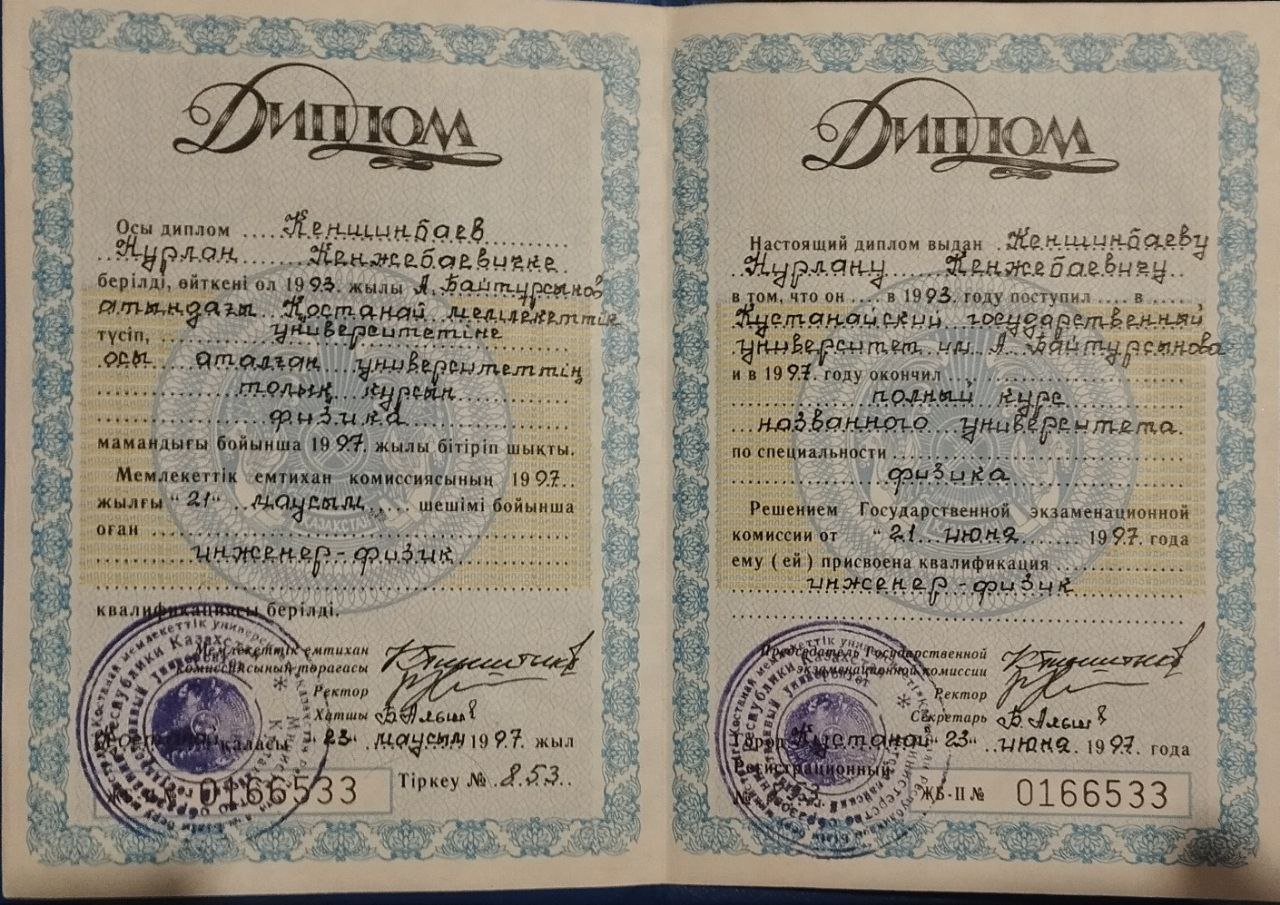 Диплом
Осы диплом Кеншинбаев
Нурлан Кенжебаевичке
берілді, өйткені ол 1993. жылы А. Байтурсынов
атындағы Қостанай мемлекеттік
түсіп, университетіне
осы аталған университеттің
толық курсын
физика
мамандығы бойынша 1997. жылы бітіріп шықты.
Мемлекеттік емтихан комиссиясының 1997.
жылғы "21" маусым шешімі бойынша
оған
инженер-физик
квалификациясы берілді.
Мемлекеттік емтихан
комиссиясының төрағасы
Ректор
Хатшы Б Алыш
қаласы "23" маусым 1997. жыл
0166533 Тіркеу № 853
Диплом
Настоящий диплом выдан Кеншинбаеву
Нурлану Кенжебаевичу
в том, что он в 1993. году поступил в
Кустанайский государственный
университет им А Байтурсынова
и в 1997. году окончил
полный курс
названного университета.
по специальности
физика
Решением Государственной экзаменационной
комиссии от "21 июня 1997. года
ему ( ей ) присвоена квалификация
инженер-физик
Председатель Государственной
экзаменационной комиссии
Ректор
Секретарь Б Алыш
город Кустанай "23" июня. 1997. года
Регистрационный
№ 853 ЖБ-II № 0166533